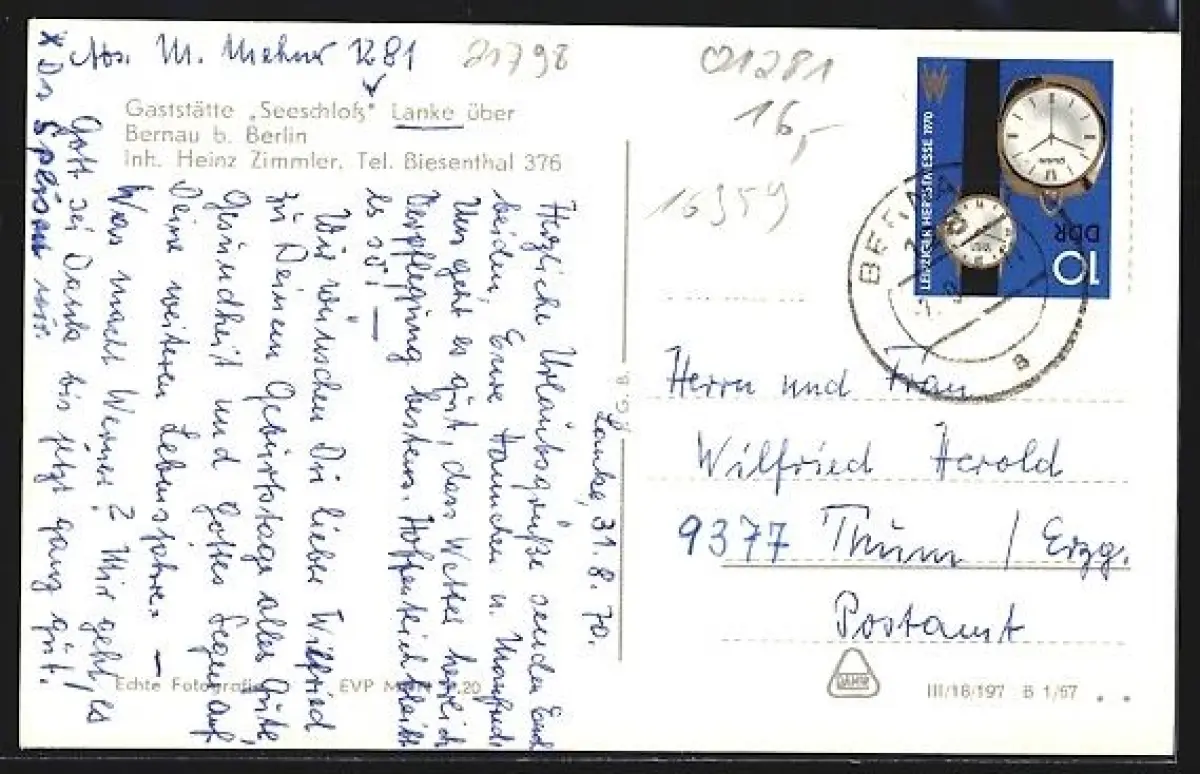 Abs. M. Mehner 1281
21798
01281
16,-
16959
Gaststätte „Seeschloß" Lanke über
Bernau b. Berlin
Inh. Heinz Zimmler. Tel. Biesenthal 376
Lanke, 31. 8. 70.
Herzliche Urlaubsgrüße senden Euch
beiden, Eure Hannchen u. Manfred.
Uns geht es gut, das Wetter herrlich
Verpflegung bestens. Hoffentlich bleibt
es so! —
Wir wünschen Dir lieber Wilfried
zu Deinem Geburtstage alles Gute,
Gesundheit und Gottes Segen auf
Deine weiteren Lebensjahre. —
Was macht Werner? Mir geht es
Gott sei Dank bis jetzt ganz gut!
Speisen wir.
LEIPZIGER HERBSTMESSE 1970
DDR
10
BERNAU
a
Herrn und Frau
Wilfried Herold
9377 Thum / Erzg.
Postamt
Echte Fotografie
EVP MDN 0.20
III/18/197 B 1/67